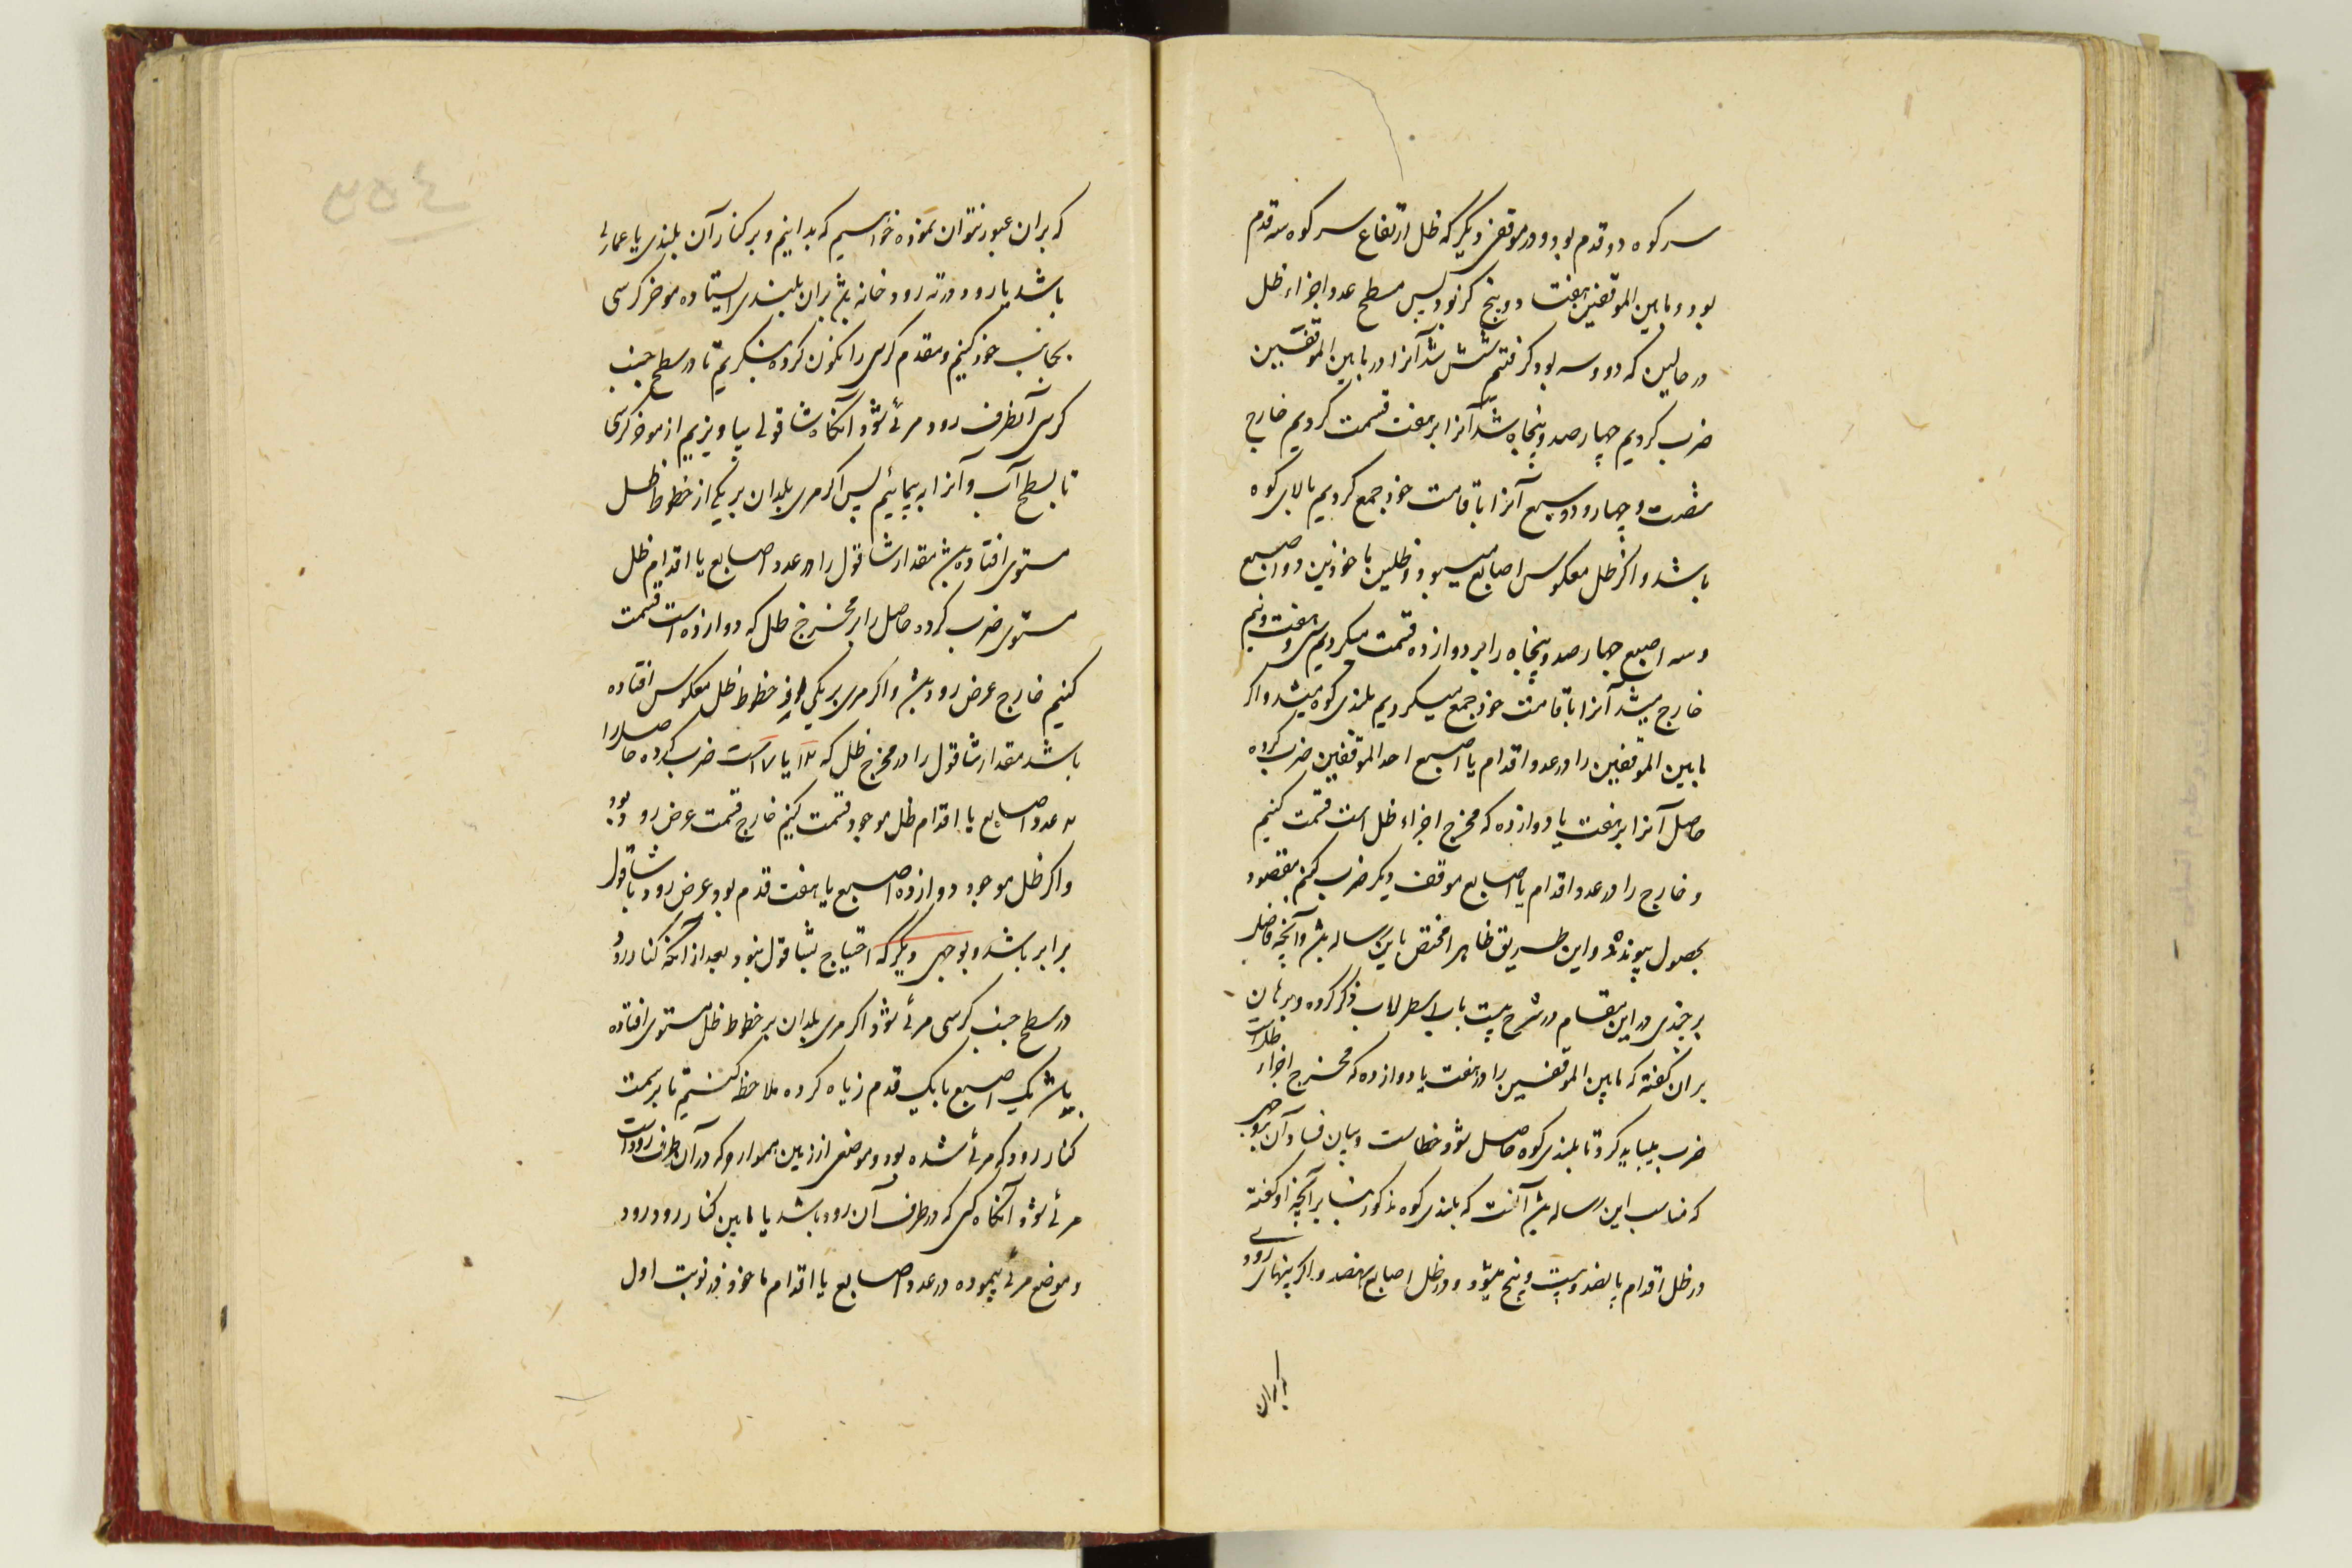 سر کوه دو قدم بود و در موقف دیگر که ظل ارتفاع سر کوه سه قدم
بود و ما بین الموقفین هفتاد و پنج گز بود پس مسطح عدد اجزاء ظل
در حالین که دو و سه بود گرفتیم شش شد آنرا در ما بین الموقفین
ضرب کردیم چهار صد و پنجاه شد آنرا بر هفت قسمت کردیم خارج
شصت و چهار و دو سبع آنرا با قامت خود جمع کردیم بالای کوه
باشد و اگر ظل معکوس اصابع میبود و ظلین ماخوذین دو اصبع
و سه اصبع چهار صد و پنجاه را بر دوازده قسمت میکردیم سی و هفت و نیم
خارج میشد آنرا با قامت خود جمع میکردیم بلندی کوه میشد و اگر
ما بین الموقفین را در عدد اقدام یا اصبع احد الموقفین ضرب کرده
حاصل آنرا بر هفت یا دوازده که مخرج اجزاء ظل است قسمت کنیم
و خارج را در عدد اقدام یا اصابع موقف دیگر ضرب کنیم مقصود
بحصول پیوندد و این طریق ظاهرا مختص باین رساله باشد و آنچه فاضل
برجندی در این مقام در شرح بیست باب اسطرلاب ذکر کرده و برهان
بر آن گفته که ما بین الموقفین را در هفت یا دوازده که مخرج اجزاء ظل است
ضرب میباید کرد تا بلندی کوه حاصل شود خطاست و بیان فساد آن بوجهی
که مناسب این رساله باشد آنست که بلندی کوه مذکور بنا بر آنچه او گفته
در ظل اقدام پانصد و بیست و پنج میشود و در ظل اصابع نهصد و اگر پهنای رودی
که بران عبور نتوان نمود خواسیم که بدانیم و بر کنار آن بلندی یا عمارتی
باشد یا رود در ته رودخانه باشد بران بلندی ایستاده موخر کرسی
بجانب خود کنیم و مقدم کرسی را نگون کرده بنگریم تا در سطح جنب
کرسی آنطرف رود مرئی شود آنگاه شاقولی بیاویزیم از موخر کرسی
تا بسطح آب و آنرا به پیمائیم پس اگر مری بلدان بر یکی از خطوط ظل
مستوی افتاده باشد مقدار شاقول را در عدد اصابع یا اقدام ظل
مستوی ضرب کرده حاصل را بر مخرج ظل که دوازده است قسمت
کنیم خارج عرض رود باشد و اگر مری بر یکی از خطوط ظل معکوس افتاده
باشد مقدار شاقول را در مخرج ظل که ۱۲ یا ۷ است ضرب کرده حاصل را
بر عدد اصابع یا اقدام ظل موجود قسمت کنیم خارج قسمت عرض رود بود
و اگر ظل موجود دوازده اصبع یا هفت قدم بود عرض رود با شاقول
برابر باشد و بوجهی دیگر که احتیاج بشاقول نبود بعد از آنکه کنار رود
در سطح جنب کرسی مرئی شود اگر مری بلدان بر خطوط ظل مستوی افتاده
باشد یک اصبع یا یک قدم زیاه کرده ملاحظه کنیم تا بر سمت
کنار رود که مرئی شده بود و موضعی از زمین هموار که در آن طرف رود است
مرئی شود آنگاه که در طرف آن رود باشد یا ما بین کنار رود
و موضع مرئی پیموده در عدد اصابع یا اقدام ماخوذ در نوبت اول